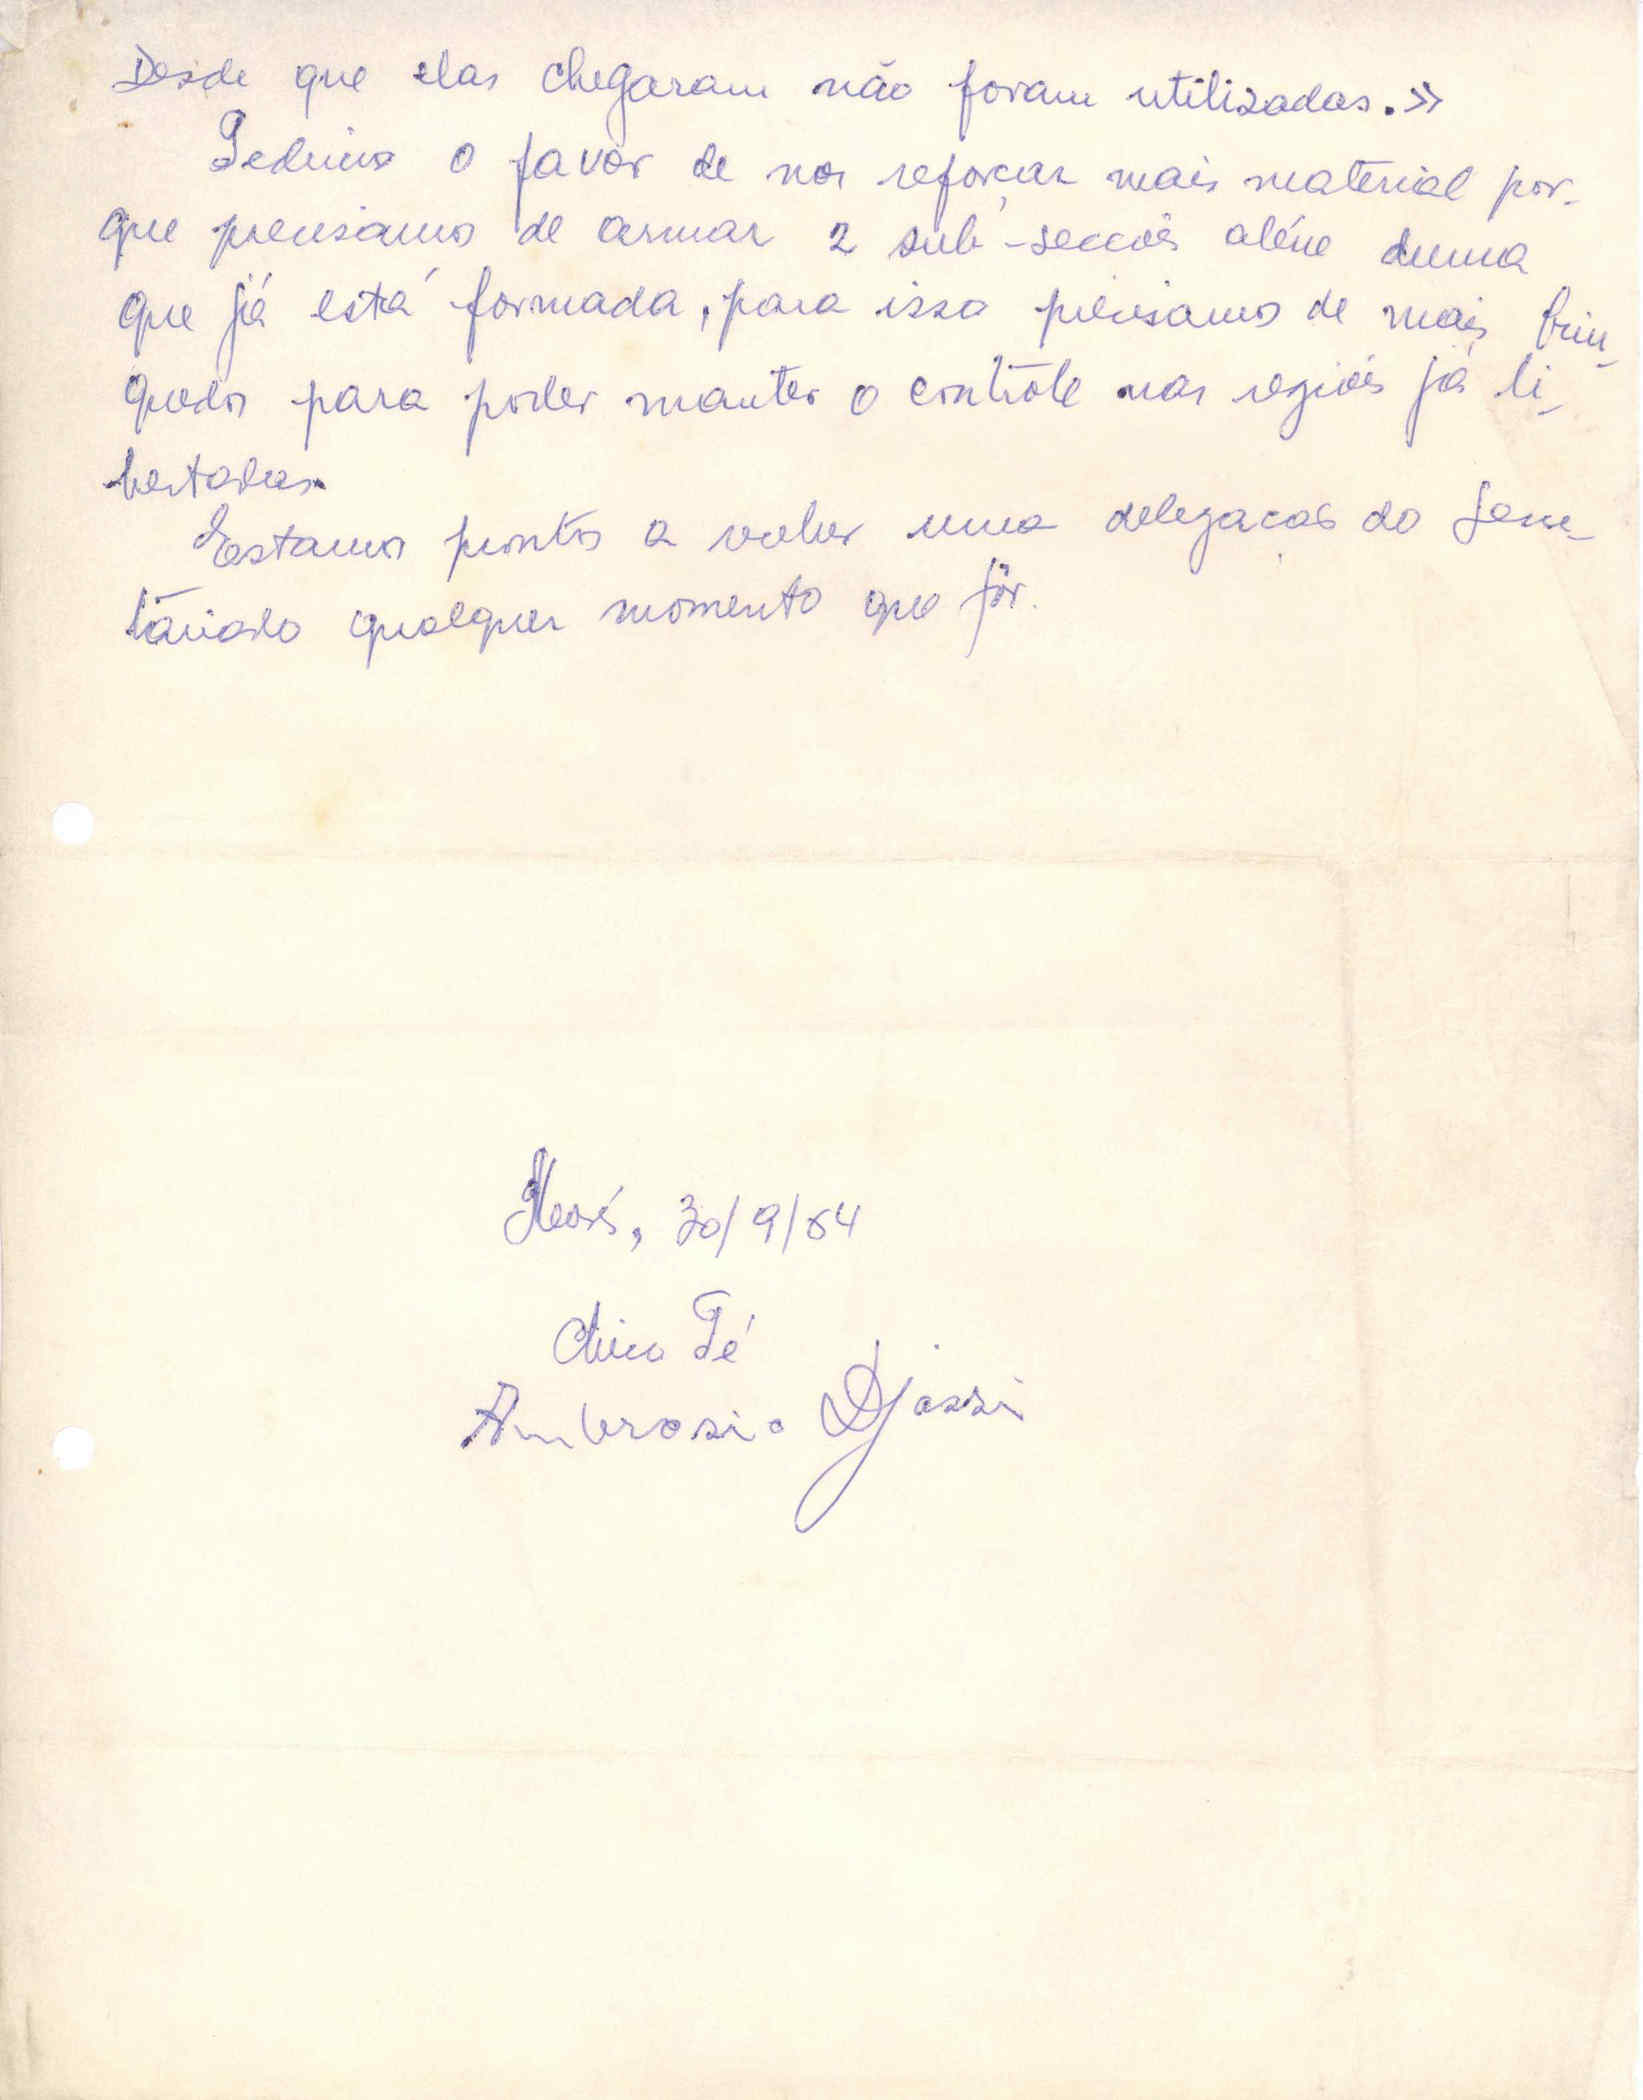 Desde que elas chegaram não foram utilizadas.»
Pedimos o favor de nos reforçar mais material por-
que precisamos de armar 2 sub-secções além duma
que já está formada, para isso precisamos de mais brin-
quedos para poder manter o contrôle nas regiões já li-
bertadas.
Estamos prontos a receber uma delegacão do Secre-
tàriado qualquer momento que fôr.
Morés, 30/9/64
Chico Té
Ambrosio Djassi